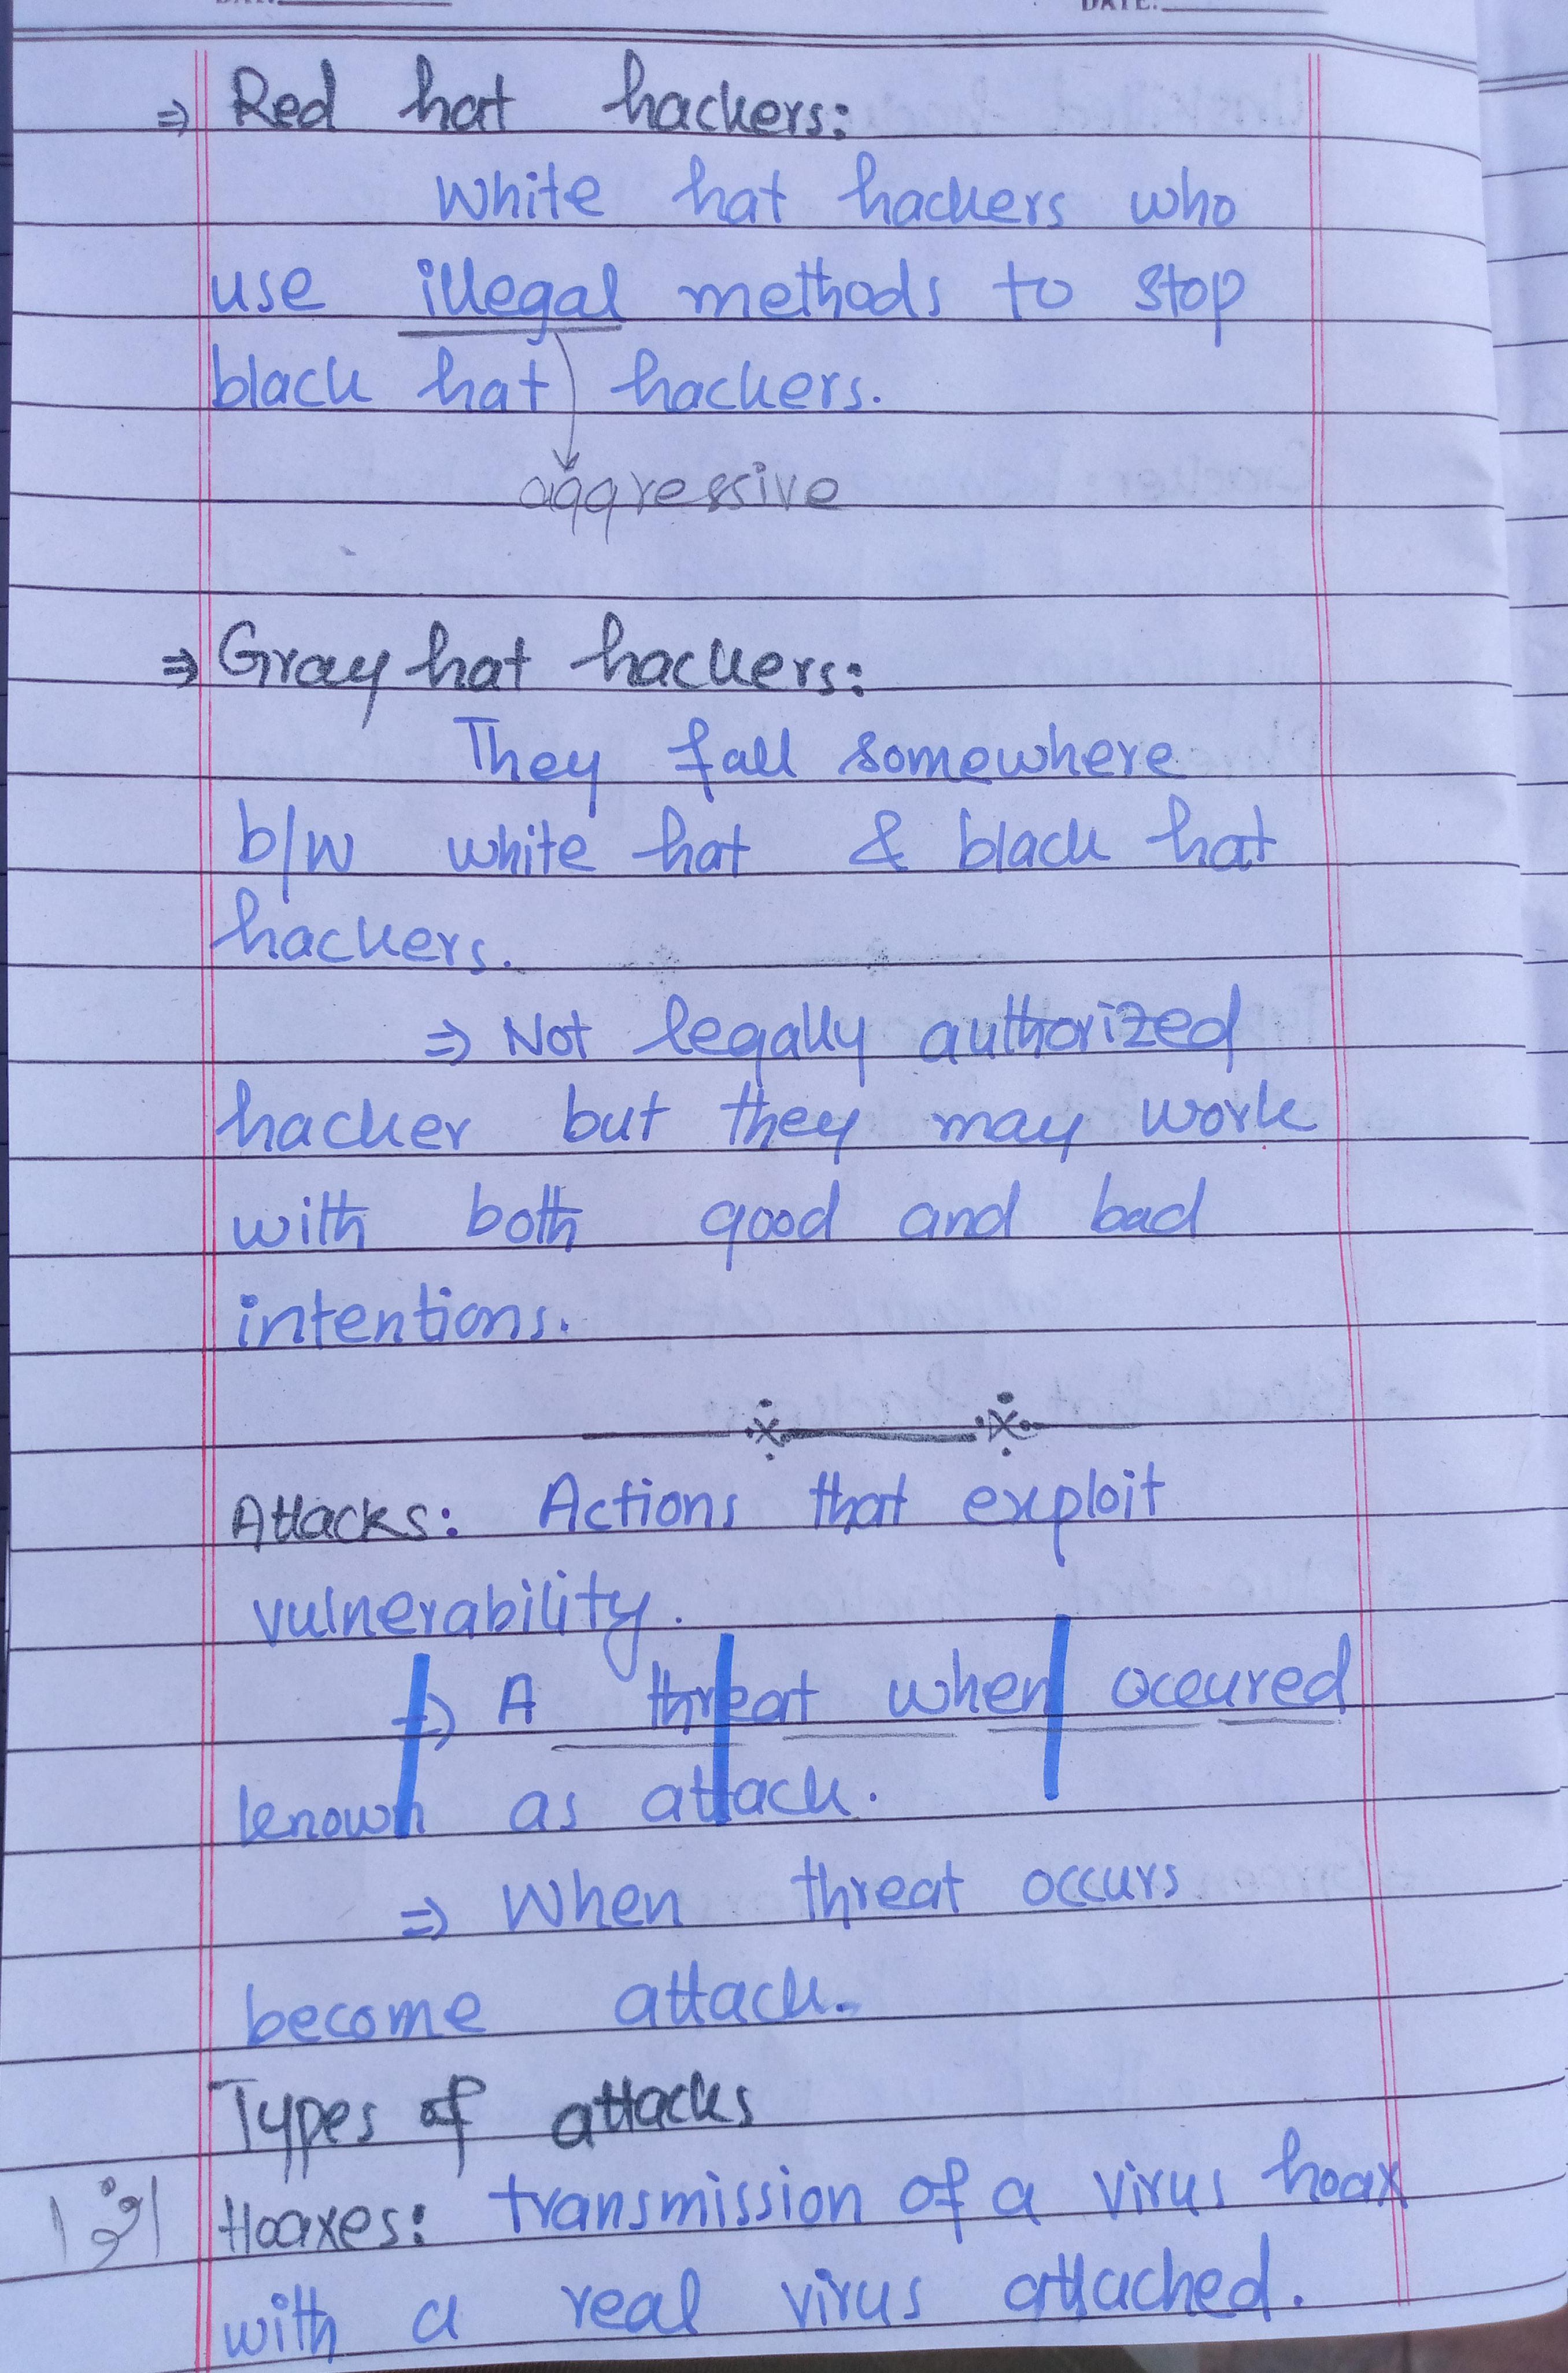 DATE:
⇒ Red hat hackers:
White hat hackers who
use illegal methods to stop
black hat hackers.
aggressive
⇒ Gray hat hackers:
They fall somewhere
b/w white hat & black hat
hackers.
⇒ Not legally authorized
hacker but they may work
with both good and bad
intentions.
Attacks: Actions that exploit
vulnerability.
⇒ A threat when occured
known as attack.
⇒ When threat occurs
become attack.
Types of attacks
Hoaxes: transmission of a virus hoax
with a real virus attached.